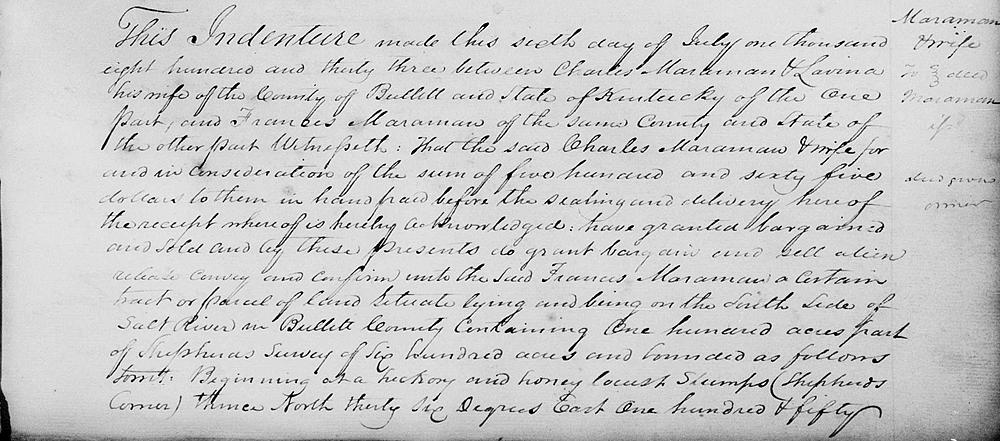 This Indenture made this sixth day of July one thousand
eight hundred and thirty three between Charles Maraman & Lavina
his wife of the County of Bullitt and State of Kentucky of the One
part, and Frances Maraman of the same County and State of
the other part Witnesseth: That the said Charles Maraman & wife for
and in consideration of the sum of five hundred and sixty five
dollars to them in hand paid before the sealing and delivery here of
the receipt where of is hereby acknowledged: have granted bargained
and sold and by these presents do grant bargain and sell alien
release convey and confirm unto the said Frances Maraman a certain
tract or parcel of land situate lying and being on the South side of
Salt River in Bullitt County Containing One hundred acres part
of Shepherds Survey of Six hundred acres and bounded as follows
towit: Beginning at a hickory and honey locust Stumps (Shepherds
Corner) thence North thirty Six Degrees East One hundred & fifty
Maraman
& wife
To deed
Maraman